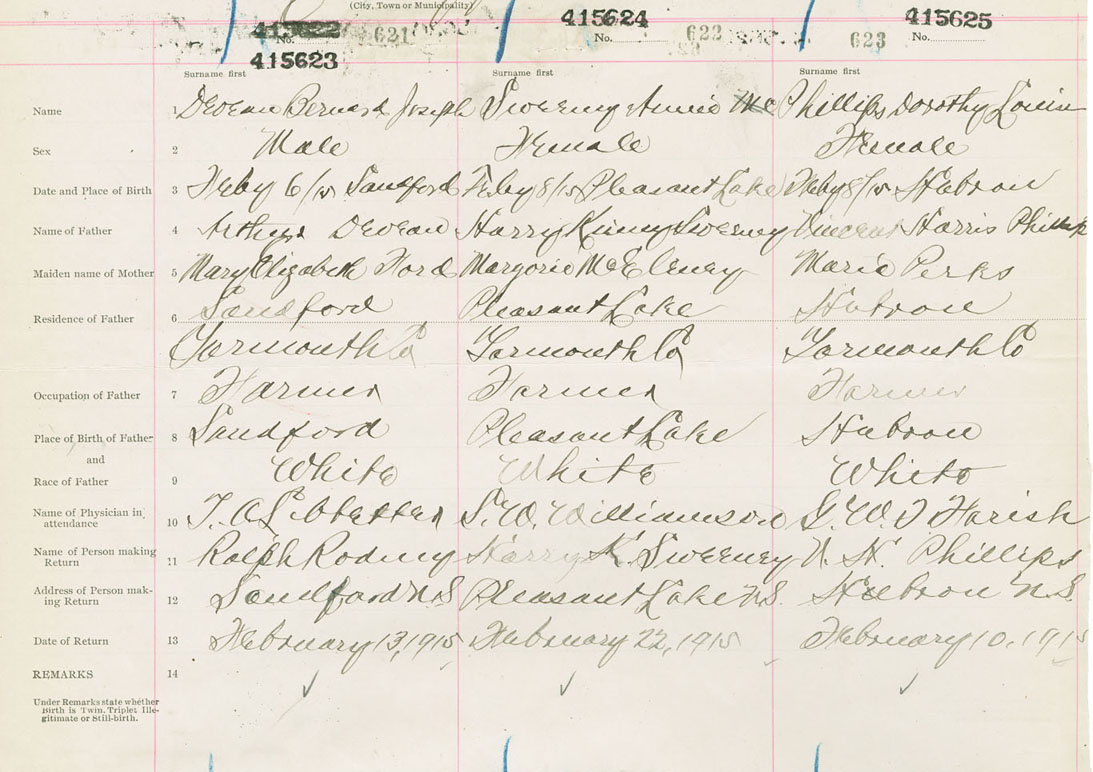 (City, Town or Municipality)
415624 415625
No. 621 No. 622 623 No.
415623
Surname first Surname first Surname first
Name 1 Deveau Bernard Joseph Sweeny Annie Mc Phillips Dorothy Louise
Sex 2 Male Female Female
Date and Place of Birth 3 Feby 6/15 Sandford Feby 8/15 Pleasant Lake Feby 8/15 Hebron
Name of Father 4 Arthur Deveau Harry Kinny Sweeney Vincent Harris Phillips
Maiden name of Mother 5 Mary Elizabeth Ford Margorie McEleney Marie Perks
Residence of Father 6 Sandford Pleasant Lake Hebron
Yarmouth Co Yarmouth Co Yarmouth Co
Occupation of Father 7 Farmer Farmer Farmer
Place of Birth of Father 8 Sandford Pleasant Lake Hebron
and
Race of Father 9 White White White
Name of Physician in attendance 10 T. A. Lebbetter S. W. Williamson G. W. T Farish
Name of Person making Return 11 Ralph Rodney Harry K. Sweeney V. H. Phillips
Address of Person making Return 12 Sandford N.S Pleasant Lake N.S. Hebron N.S.
Date of Return 13 February 13, 1915 February 22, 1915 February 10, 1915
REMARKS 14
Under Remarks state whether
Birth is Twin, Triplet Ille-
gitimate or Still-birth.